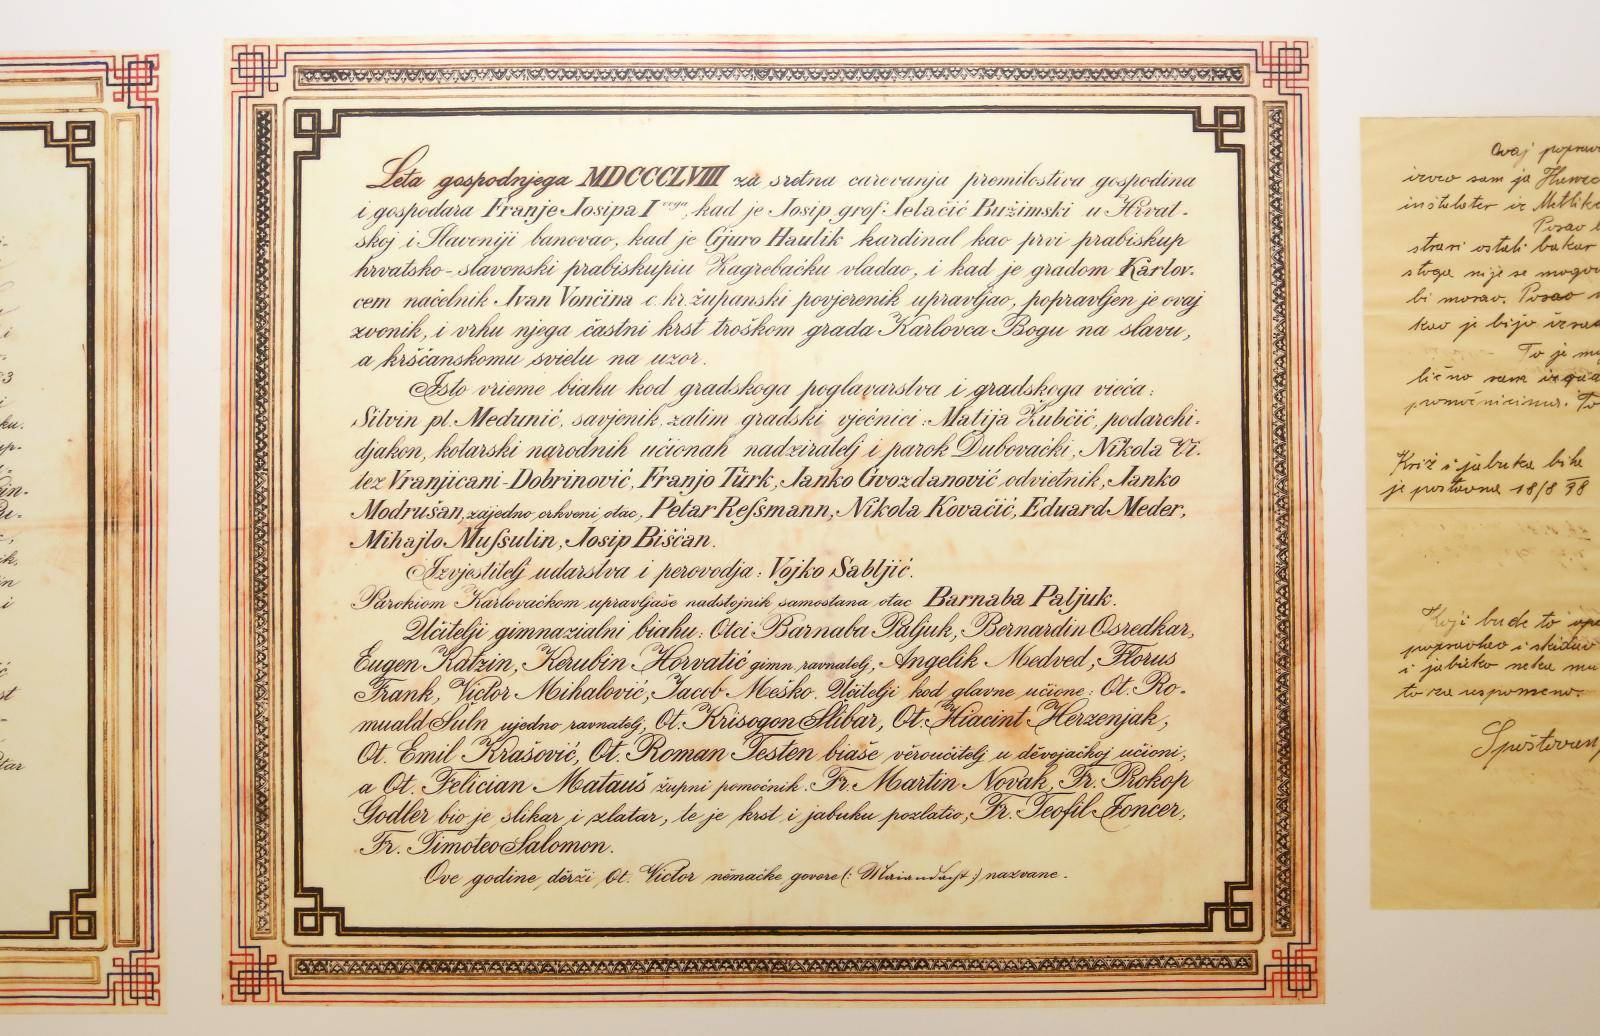 Leta gospodnjega MDCCCLVIII za sretna carevanja premilostiva gospodina
i gospodara Franje Josipa I voga, kad je Josip grof Jelačić Bužimski u Hrvat-
skoj i Slavoniji banovao, kad je Gjuro Haulik kardinal kao prvi prabiskup
hrvatsko-slavonski prabiskupiu Zagrebačku vladao, i kad je gradom Karlov-
cem načelnik Ivan Vončina c. kr. županski povjerenik upravljao, popravljen je ovaj
zvonik, i vrhu njega častni krst troškom grada Karlovca Bogu na slavu,
a kršćanskomu svielu na uzor.
Isto vrieme biahu kod gradskoga poglavarstva i gradskoga vieća:
Silvin pl. Medunić, savjenik, zatim gradski vjećnici: Matija Zubčić, podarchi-
djakon, kotarski narodnih učionah nadziratelj i parok Dubovački, Nikola Vi-
tez Vranjicani-Dobrinović, Franjo Türk, Janko Gvozdanović odvietnik, Janko
Modrušan, zajedno crkveni otac, Petar Reſsmann, Nikola Kovačić, Eduard Meder,
Mihajlo Muſsulin, Josip Bišćan.
Izvjestitelj udarstva i perovodja: Vojko Sabljić.
Parokiom Karlovačkom upravljaše nadstojnik samostana otac Barnaba Paljuk.
Učitelji gimnazialni biahu: Otci Barnaba Paljuk, Bernardin Osredkar,
Eugen Katzin, Kerubin Horvatić gimn. ravnatelj, Angelik Medved, Florus
Frank, Victor Mihalović, Jacob Meško. Učitelji kod glavne učione: Ot. Ro-
muald Šuln ujedno ravnatelj, Ot. Krisogon Slibar, Ot. Hiacint Herzenjak,
Ot. Emil Krasović, Ot. Roman Testen biaše vĕroučitelj u dĕvojačkoj učioni,
a Ot. Felician Mataus župni pomoćnik. Fr. Martin Novak, Fr. Prokop
Godler bio je slikar i zlatar, te je krst i jabuku pozlatio, Fr. Teofil Zoncer,
Fr. Timoteo Salomon.
Ove godine dĕrži Ot. Victor nĕmačke govore (: Maiandacht :) nazvane.
Ovaj poprav
izveo sam ja
instalater iz Metlike
Posao
strari ostali bakar
stoga nije se mogo
bi morao. Posao
kao je bijo
To je
lično sam
Križ i jabuka bila
je postavna 18/8 38
Koji bude to
i
i jabuko neka mu
to za uspomeno.